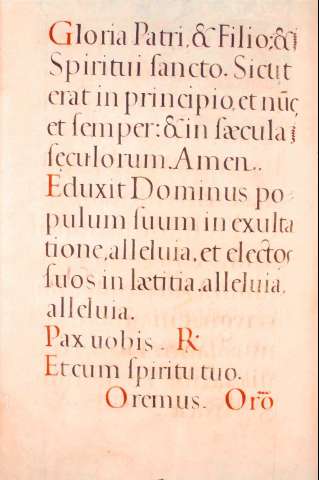 Gloria Patri, & Filio: &
Spiritui ſancto. Sicut
erat in principio, et nūc
et ſemper: & in ſæcula
ſęculorum. Amen..
Eduxit Dominus po-
pulum ſuum in exulta
tione, alleluia, et electos
ſuos in lætitia, alleluia,
alleluia.
Pax uobis. ℟
Et cum ſpiritu tuo.
Oremus. Orō